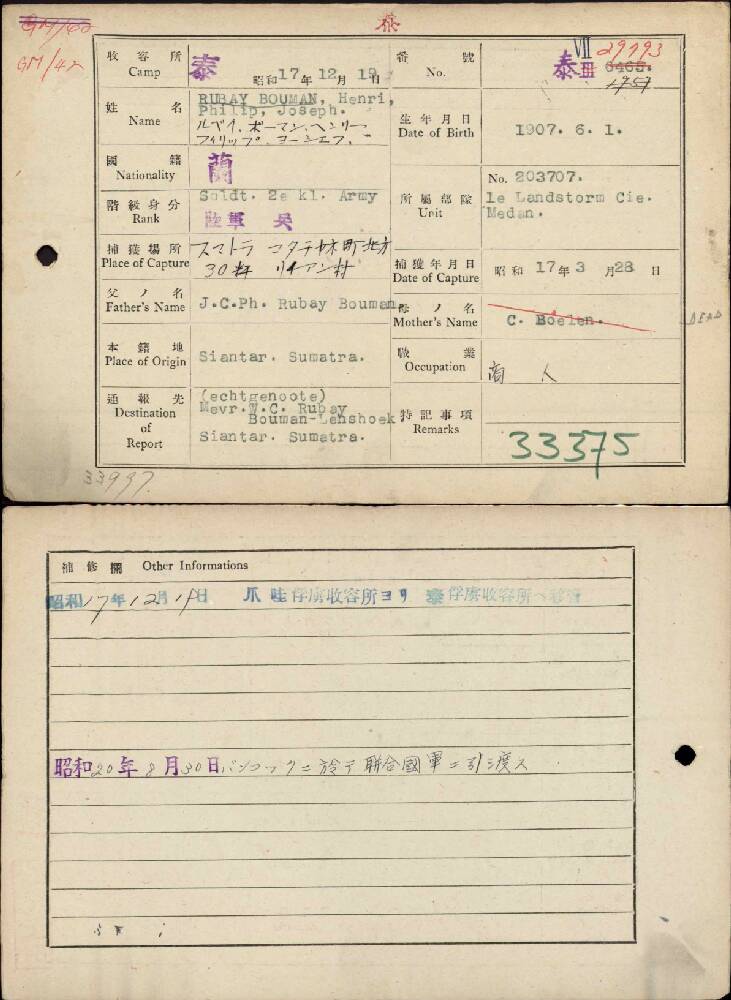 GM/42
泰
收容所
Camp
泰
昭和17年12月19日
番號
No.
泰 VII 29793
III 6465.
1757
姓名
Name
RUBAY BOUMAN, Henri,
Philip, Joseph.
ルベイ.ボーマン.ヘンリー
フィリップ.ヨーシエフ.
生年月日
Date of Birth
1907. 6. 1.
國籍
Nationality
蘭
階級身分
Rank
Soldt. 2e kl. Army
陸軍 兵
所屬部隊
Unit
No. 203707.
1e Landstorm Cie.
Medan.
捕獲場所
Place of Capture
スマトラ コタチヤネ町北方
30粁 リキアン村
捕獲年月日
Date of Capture
昭和17年3月28日
父ノ名
Father's Name
J.C.Ph. Rubay Bouman.
母ノ名
Mother's Name
C. Boelen.
DEAD
本籍地
Place of Origin
Siantar. Sumatra.
職業
Occupation
商人
通報先
Destination
of
Report
(echtgenoote)
Mevr.W.C. Rubay
Bouman-Lenshoek
Siantar. Sumatra.
特記事項
Remarks
33375
33997.
補修欄 Other Informations
昭和17年12月19日 爪哇俘虜收容所ヨリ 泰俘虜收容所ヘ移管
昭和20年8月30日バンコックニ於テ聯合國軍ニ引渡ス